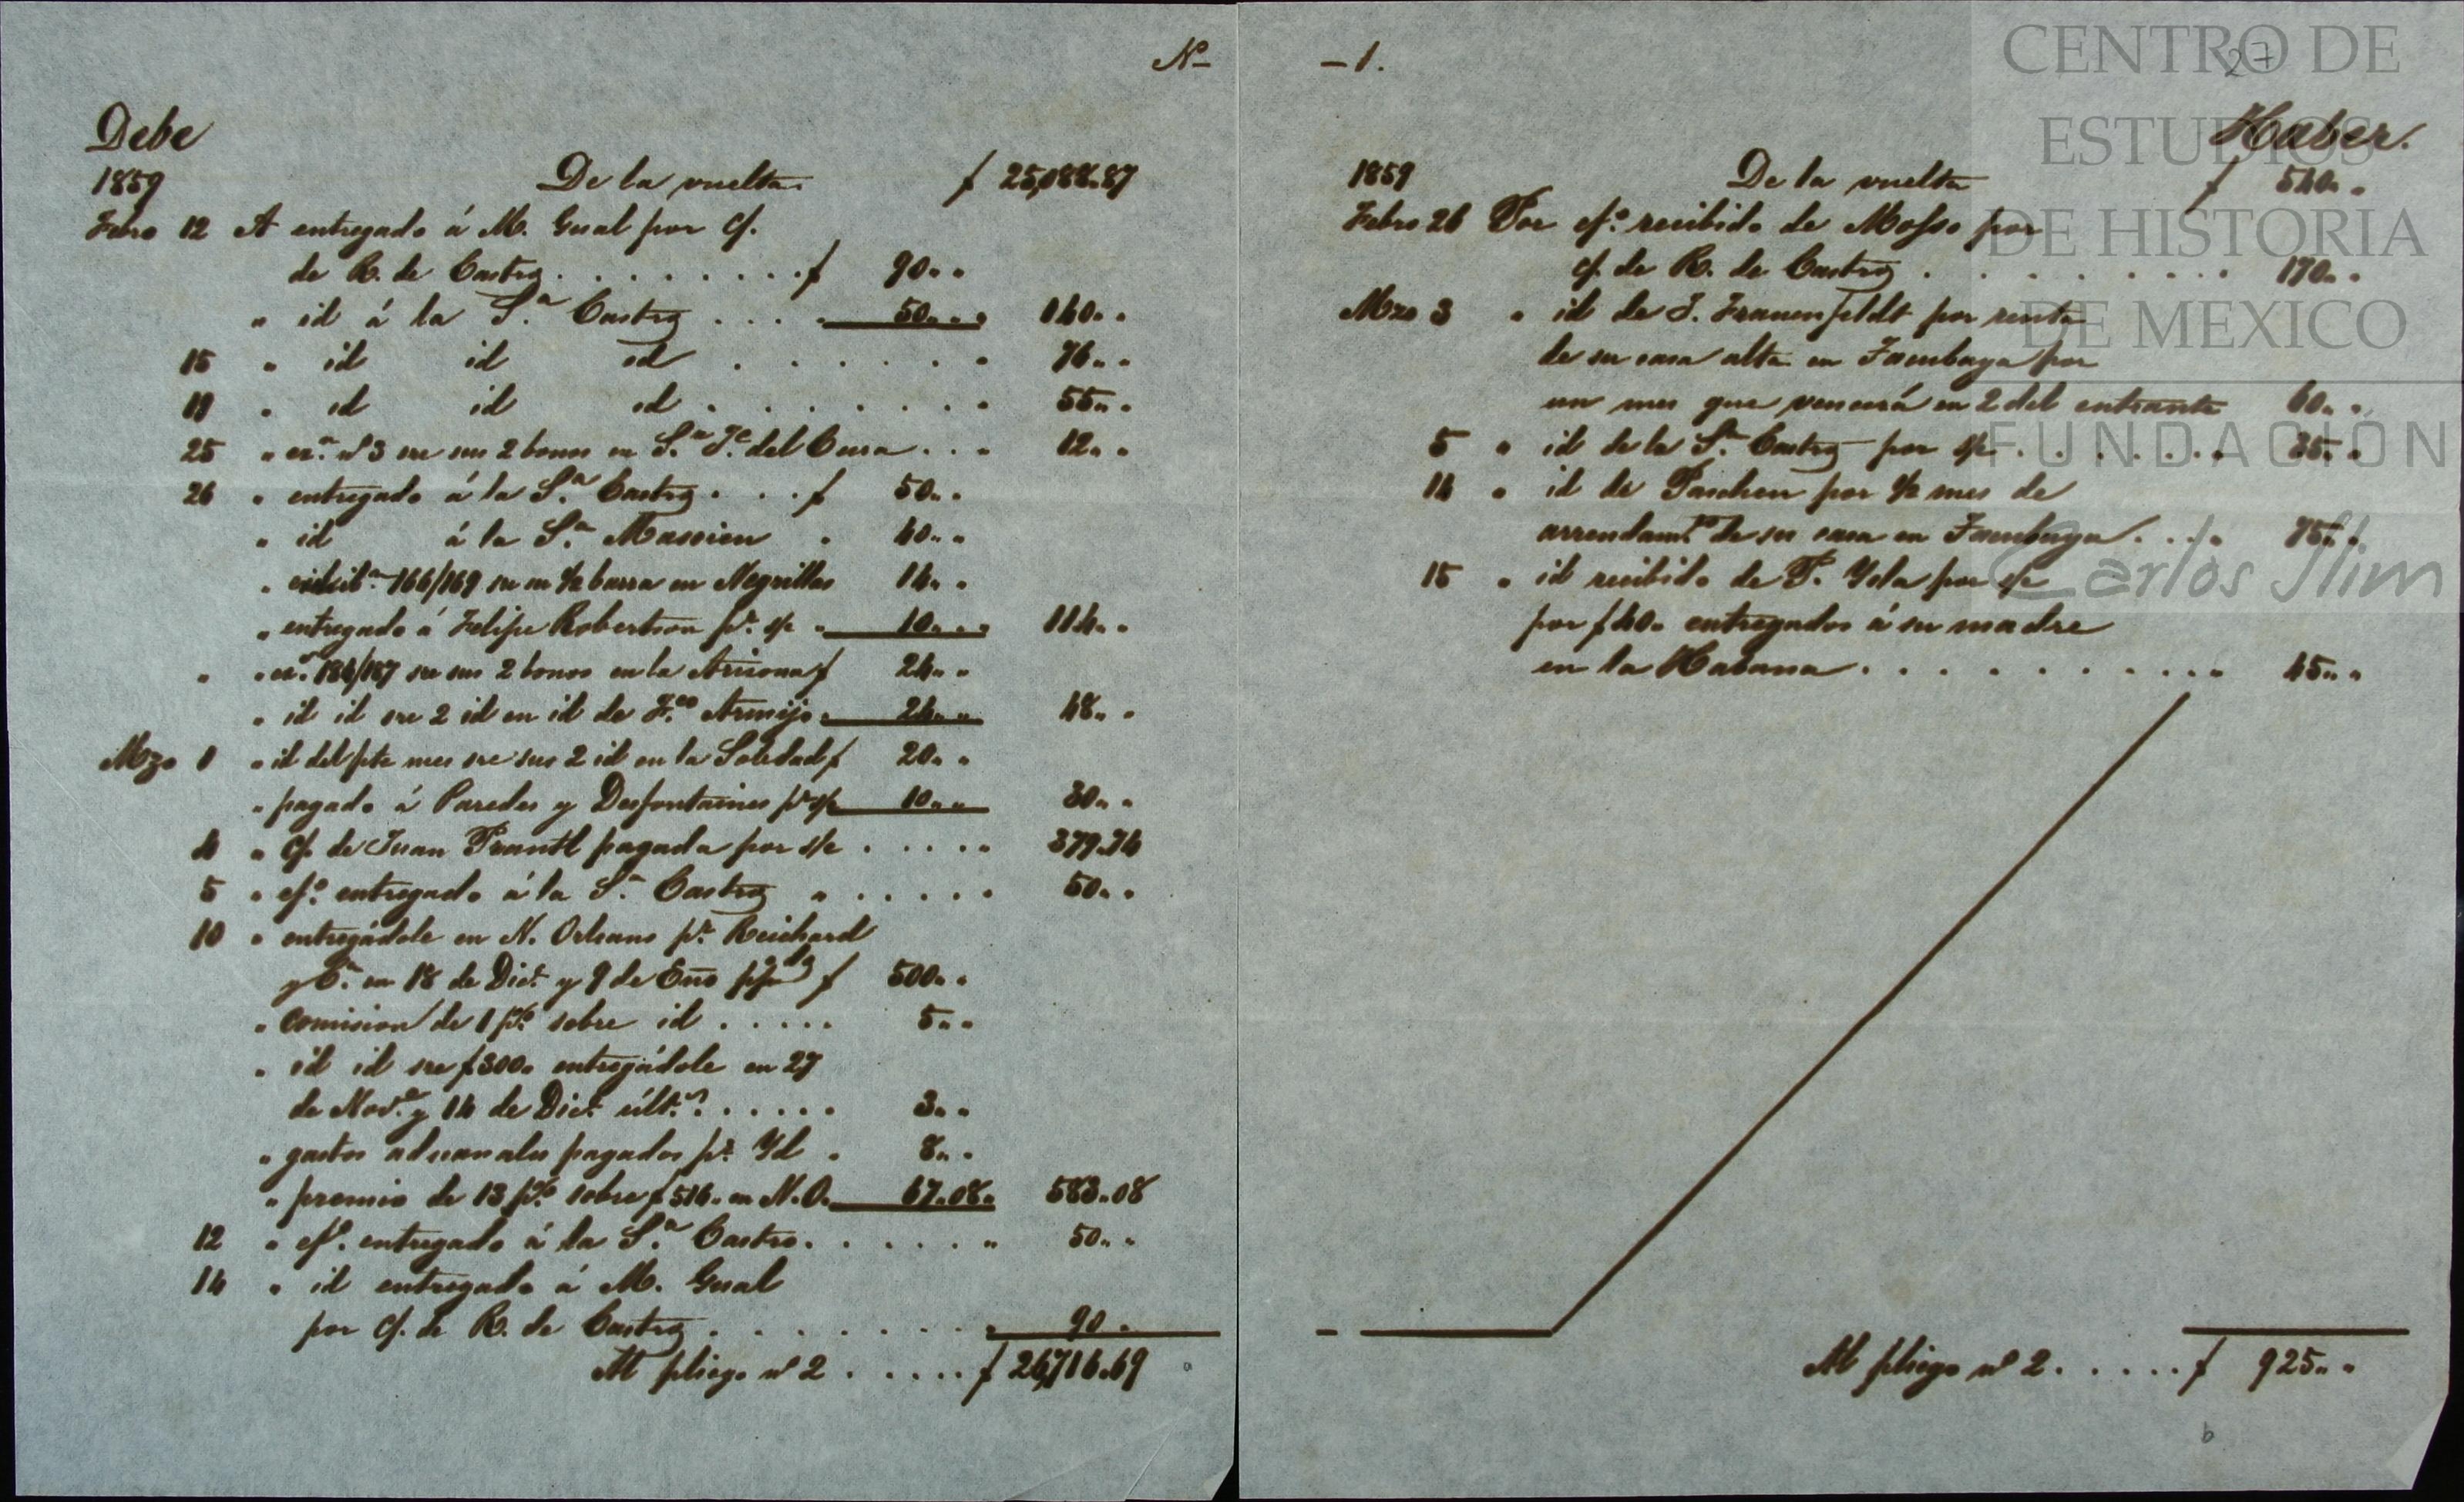 Nº
Debe
1859 De la vuelta $ 25,088.87
Febro 12 A entregado á M. Gual por c/.
de R. de Castro . . . . . . . . . $ 90 " "
" id á la S.ª Castro . . . . 50 " " 140 " "
15 " id id id . . . . . . " 76 " "
19 " id id id . . . . . . . " 55 " "
25 " ex.ª nº 3 sre sus 2 bonos en S.ª Fe. del Cura . . " 12 " "
26 " entregado á la S.ª Castro . . . $ 50 " "
" id á la S.ª Massieu " 40 " "
" 166/169 sre su ½ barra en Negrillas 14 " "
" entregado á Felipe Robertson pr. s/c " 10 " " 114 " "
" " ex.ª 184/187 sre sus 2 bonos en la Arizona $ 24 " "
" id id sre 2 id en id de F.co Armijo " 24 " " 48 " "
Mzo 1 " id del pte mes sre sus 2 id en la Soledad $ 20 " "
" pagado á Paredes y Desfontaines pr s/c 10 " " 30 " "
4 " c/. de Juan Prantl pagada por s/c . . . . " 379.74
5 " ef.º entregado á la S.ª Castro " . . . . . " 50 " "
10 " entregádole en N. Orleans pr. Reichard
y C.ª en 18 de Dice. y 9 de Eno ppdo $ 500 " "
" comision de 1 p% sobre id . . . . . 5 " "
" id id sre $ 300 " entregádole en 27
de Nov.e y 14 de Dice. últ.os . . . . . 3 " "
" gastos aduanales pagados pr. Yd " 8 " "
" premio de 13 p% sobre $ 516 " en N.O. 67.08 " 583.08
12 " ef.º entregado á la S.ª Castro . . . . . . " 50 " "
14 " id entregado á M. Gual
por c/. de R. de Castro . . . . . . . " 90 "
Al pliego nº 2 . . . . . $ 26,716.69
– 1.
27
Haber.
1859 De la vuelta $ 540 " "
Febro 26 Por ef.º recibido de Mosso por
c/. de R. de Castro . . . . . . . . . 170 " "
Mzo 3 " id de J. Frauenfeldt por renta
de su casa alta en Tacubaya por
un mes que vencerá en 2 del entrante 60 " "
5 " id de la S.ª Castro por s/c . . . . . . . 35 " "
14 " id de Paschen por ½ mes de
arrendam.to de su casa en Tacubaya . . . " 75 " "
15 " id recibido de P. Ysla por s/c
por $ 40 " entregados á su madre
en la Habana . . . . . . . . . . " 45 " "
Al pliego nº 2 . . . . . $ 925 " "
b
CENTRO DE
ESTUDIOS
DE HISTORIA
DE MEXICO
FUNDACIÓN
Carlos Slim